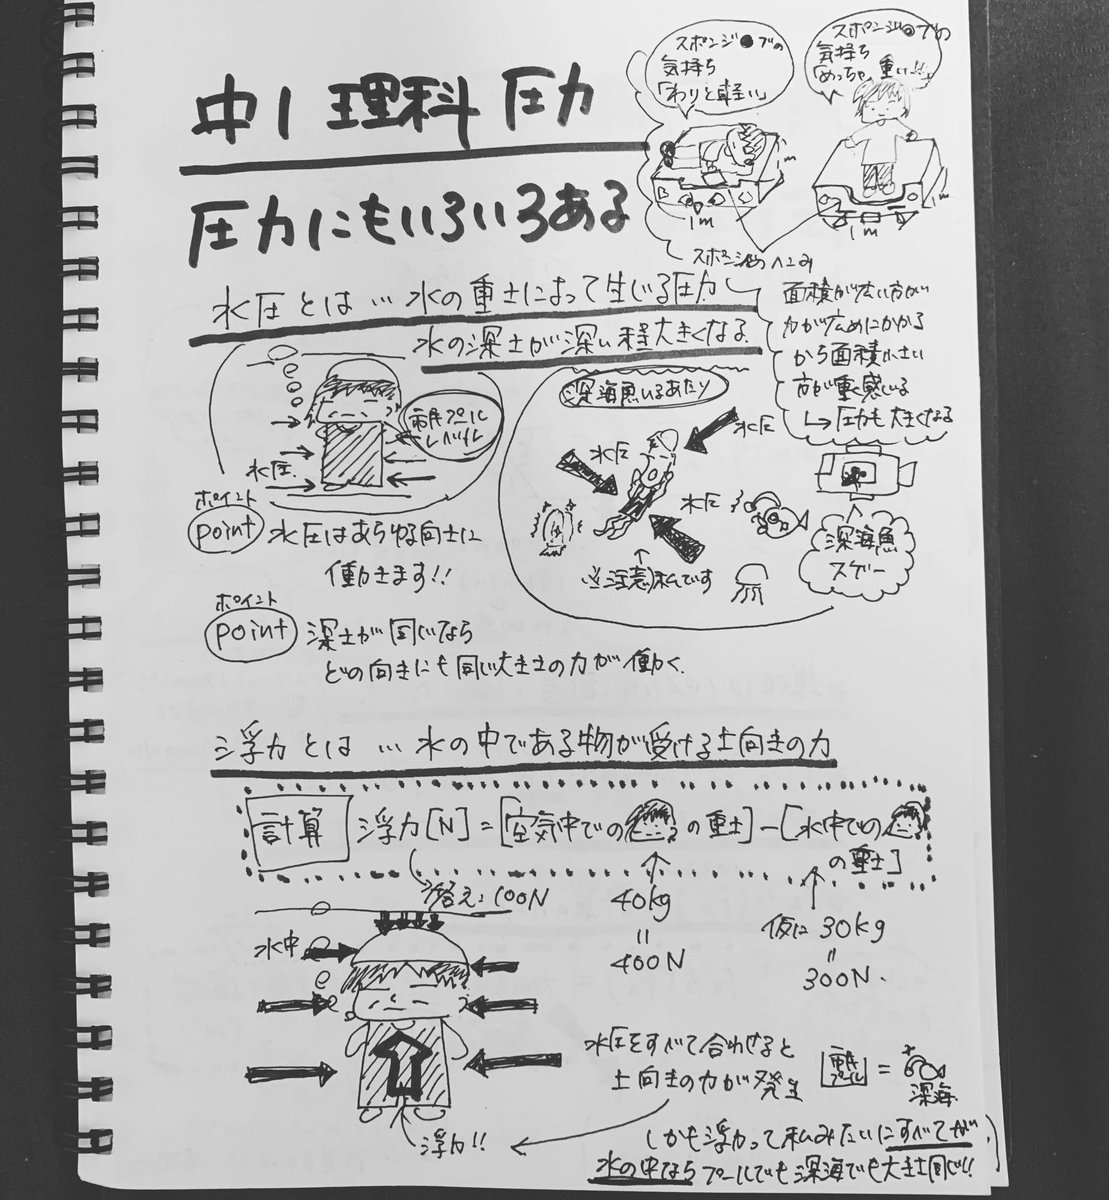 中1 理科 圧力
圧力にもいろいろある
スポンジ●ブの
気持ち
「わりと軽い」
スポンジ●ブの
気持ち
「めっちゃ重い!!」
1m
1m
1m
1m
スポンジのヘこみ
面積が広い方が
力が広めにかかる
から面積小さい
方が重く感いる
↳圧力も大きくなる
水圧とは…水の重さによって生じる圧力
水の深さが深い程大きくなる
市民プール
レベル
水圧
深海魚いるあたり
水圧
水圧
水圧
※注意)私です
深海魚
スゲー
ポイント
point 水圧はあらゆる向きに
働きます!!
ポイント
point 深さが同じなら
どの向きにも同じ大きさの力が働く
浮力とは…水の中である物が受ける上向きの力
計算 浮力[N]=[空気中での の重さ]-[水中での
の重さ]
答え:100N
40kg
=
400N
仮に30kg
=
300N
水中
浮力!!
水圧をすべて合わせると
上向きの力が発生
市民
プール
=
深海
しかも浮力って私みたいにすべてが
水の中ならプールでも深海でも大きさ同じ!!